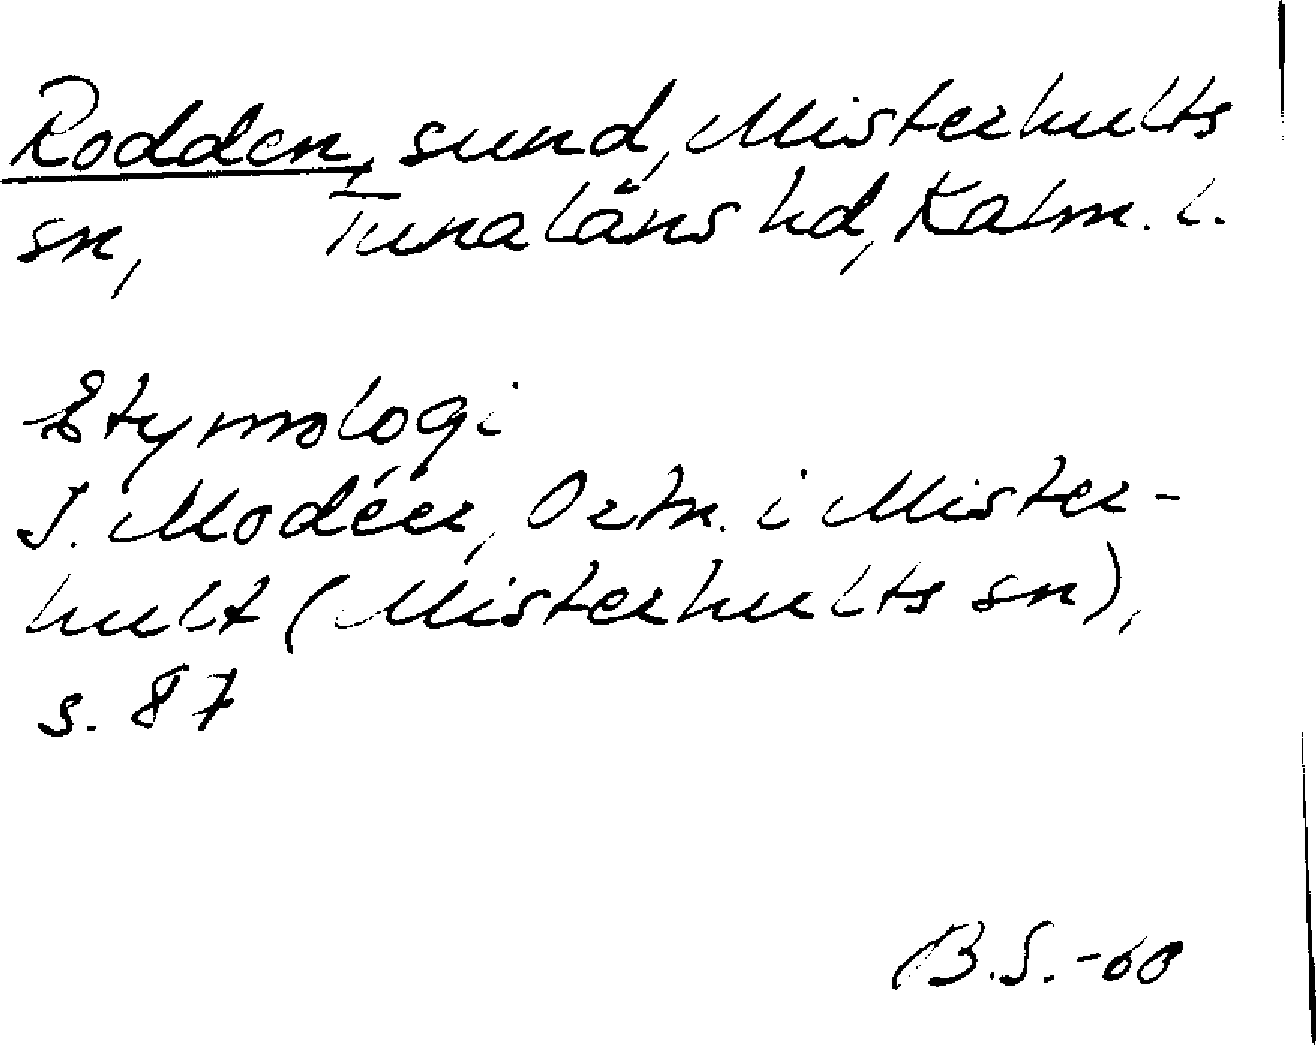 Rodden, sund, Misterhults
sn, Tunaläns hd, Kalm. l.
Etymologi
I. Modéer, Ortn. i Mister-
hult (Misterhults sn),
s. 87
B.S.-60